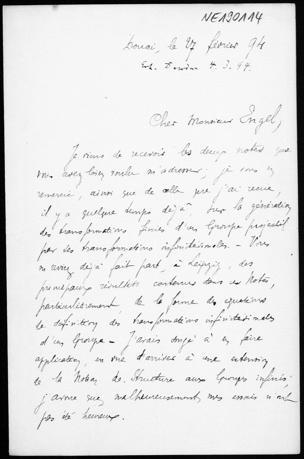 NE190114
Douai, le 27 février 94
4.3.94.
Cher Monsieur Engel,
Je viens de recevoir les deux notes que
vous avez bien voulu m'adresser; je vous en
remercie, ainsi que de celle que j'ai reçue,
il y a quelque temps déjà, sur la génération
des transformations finies d'un Groupe projectif
par ses transformations infinitésimales. — Vous
m'aviez déjà fait part, à Leipzig, des
principaux résultats contenus dans ces Notes,
particulièrement de la forme des équations
de définition des transformations infinitésimales
d'un Groupe. — J'avais songé à en faire
application, en vue d'arriver à une extension
de la Notion de Structure aux Groupes infinis;
j'avoue que, malheureusement, mes essais n'ont
pas été heureux.